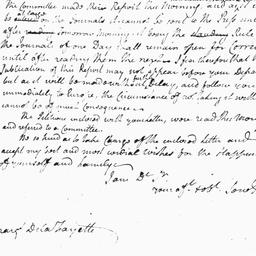 the Committee made their Report this Morning, and as it
be on the Journals it cannot be sent to the Press until
after Tomorrow Morning it being the Rule
the Journals of one Day shall remain open for Correc
until after reading them the next. I fear therefore that
Publication of this Report may not appear before your Depar
but as it will be made without Delay, and follow you
immediately to Europe, the Circumstance of not taking it with
cannot be of much Consequence.
The Letters enclosed with yours were read this Morn
and referred to a Committee.
Be so kind as to take Charge of the enclosed Letter and
accept my best and most cordial wishes for the Happiness
of yourself and Family.
I am &c &c
your aft. & Obt. Servt
Marqs De la Fayette